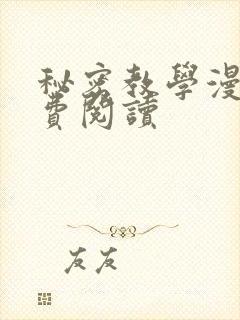 秘密教學漫
費閱讀
友友